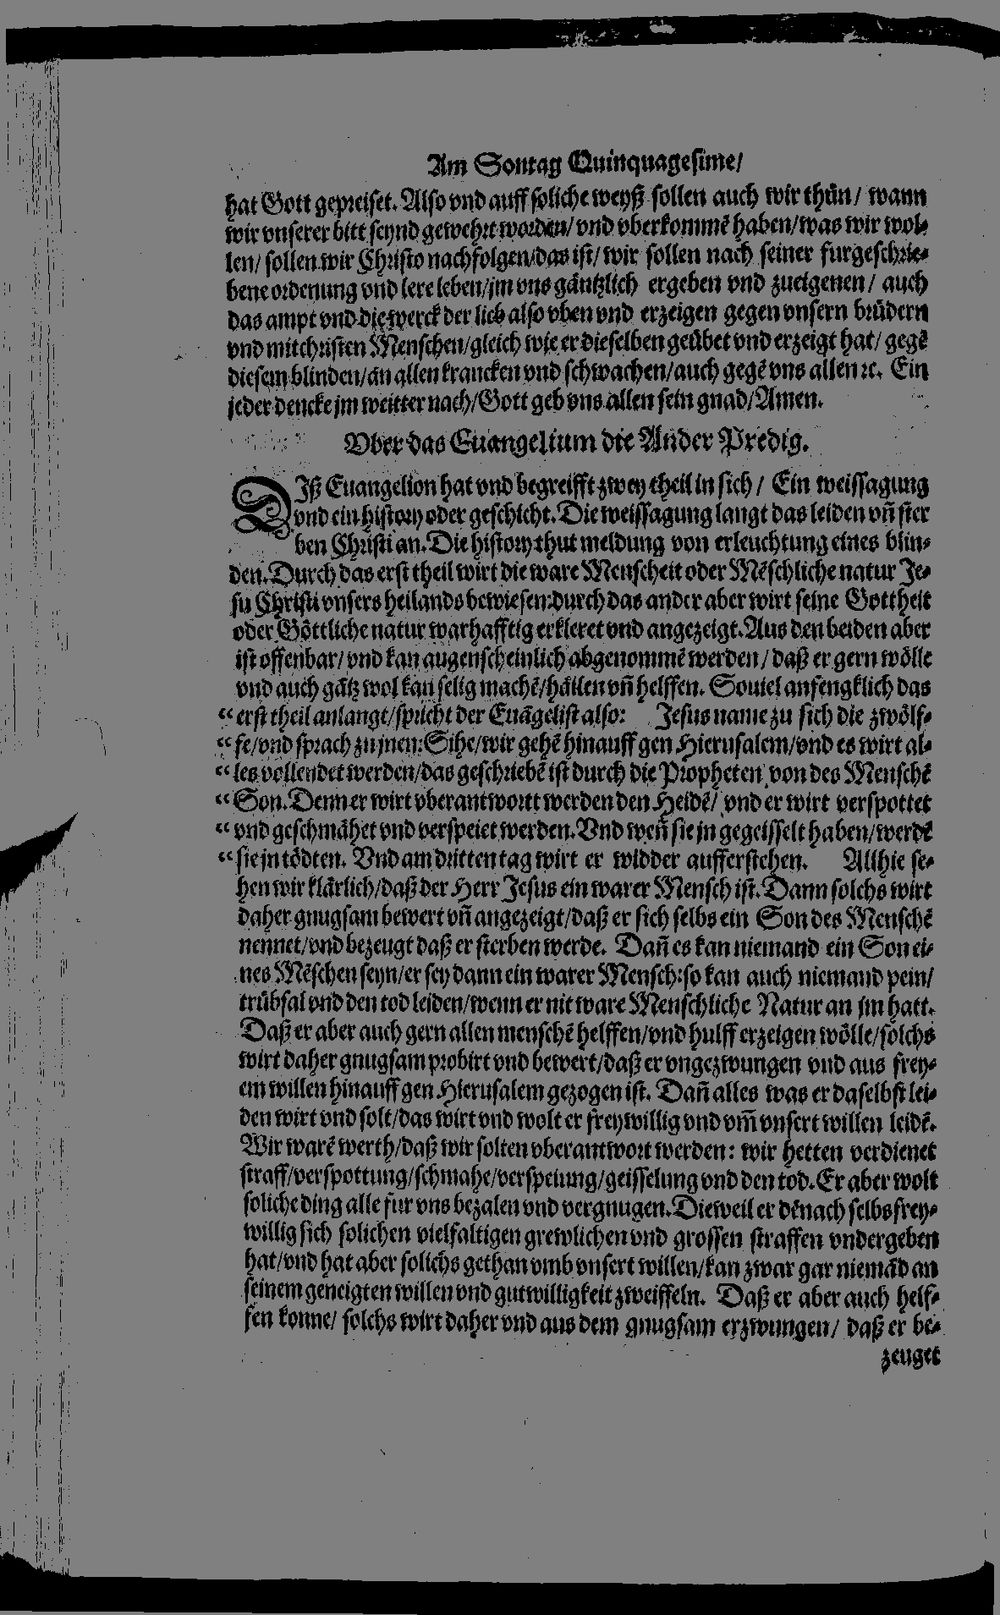 Am Sontag Quinquagesime/
hat Gott gepreiset. Also vnd auff soliche weyß sollen auch wir thůn/ wann
wir vnserer bitt seynd gewehrt worden/ vnd vberkommē haben/ was wir wol⸗
len/ sollen wir Christo nachfolgen/ das ist/ wir sollen nach seiner furgeschrie⸗
bene ordenung vnd lere leben/ jm vns gäntzlich ergeben vnd zueigenen/ auch
das ampt vnd die werck der lieb also vben vnd erzeigen gegen vnsern brüdern
vnd mitchristen Menschen/ gleich wie er dieselben geübet vnd erzeigt hat/ gegē
diesem blinden/ an allen krancken vnd schwachen/ auch gegē vns allen ꝛc. Ein
jeder dencke jm weitter nach/ Gott geb vns allen sein gnad/ Amen.
Vber das Euangelium die Ander Predig.
DIß Euangelion hat vnd begreifft zwey theil in sich/ Ein weissagung
vnd ein history oder geschicht. Die weissagung langt das leiden vñ ster
ben Christi an. Die history thut meldung von erleuchtung eines blin⸗
den. Durch das erst theil wirt die ware Menscheit oder Mēschliche natur Je⸗
su Christi vnsers heilands bewiesen: durch das ander aber wirt seine Gottheit
oder Göttliche natur warhafftig erkleret vnd angezeigt. Aus den beiden aber
ist offenbar/ vnd kan augenscheinlich abgenommē werden/ daß er gern wölle
vnd auch gātz wol kan selig machē/ häilen vñ helffen. Souiel anfengklich das
“ erst theil anlangt/ spricht der Euāgelist also: Jesus name zu sich die zwölf⸗
“ fe/ vnd sprach zu jnen: Sihe/ wir gehē hinauff gen Hierusalem/ vnd es wirt al⸗
“ les vollendet werden/ das geschriebē ist durch die Propheten von des Menschē
“ Son. Denn er wirt vberantwortt werden den Heidē/ vnd er wirt verspottet
“ vnd geschmähet vnd verspeiet werden. Vnd weñ sie jn gegeisselt haben/ werdē
“ sie jn tödten. Vnd am dritten tag wirt er widder aufferstehen. Allhie se⸗
hen wir klärlich/ daß der Herr Jesus ein warer Mensch ist. Dann solchs wirt
daher gnugsam bewert vñ angezeigt/ daß er sich selbs ein Son des Menschē
nennet/ vnd bezeugt daß er sterben werde. Dañ es kan niemand ein Son ei⸗
nes Mēschen seyn/ er sey dann ein warer Mensch: so kan auch niemand pein/
trübsal vnd den tod leiden/ wenn er nit ware Menschliche Natur an jm hatt.
Daß er aber auch gern allen menschē helffen/ vnd hulff erzeigen wölle/ solchs
wirt daher gnugsam probirt vnd bewert/ daß er vngezwungen vnd aus frey⸗
em willen hinauff gen Hierusalem gezogen ist. Dañ alles was er daselbst lei⸗
den wirt vnd solt/ das wirt vnd wolt er freywillig vnd vm̄ vnsert willen leidē.
Wir warē werth/ daß wir solten vberantwort werden: wir hetten verdienet
straff/ verspottung/ schmahe/ verspeiung/ geisselung vnd den tod. Er aber wolt
soliche ding alle fur vns bezalen vnd vergnugen. Dieweil er dēnach selbs frey⸗
willig sich solichen vielfaltigen grewlichen vnd grossen straffen vndergeben
hat/ vnd hat aber solichs gethan vmb vnsert willen/ kan zwar gar niemād an
seinem geneigten willen vnd gutwilligkeit zweiffeln. Daß er aber auch helf⸗
fen konne/ solchs wirt daher vnd aus dem gnugsam erzwungen/ daß er be⸗
zeuget